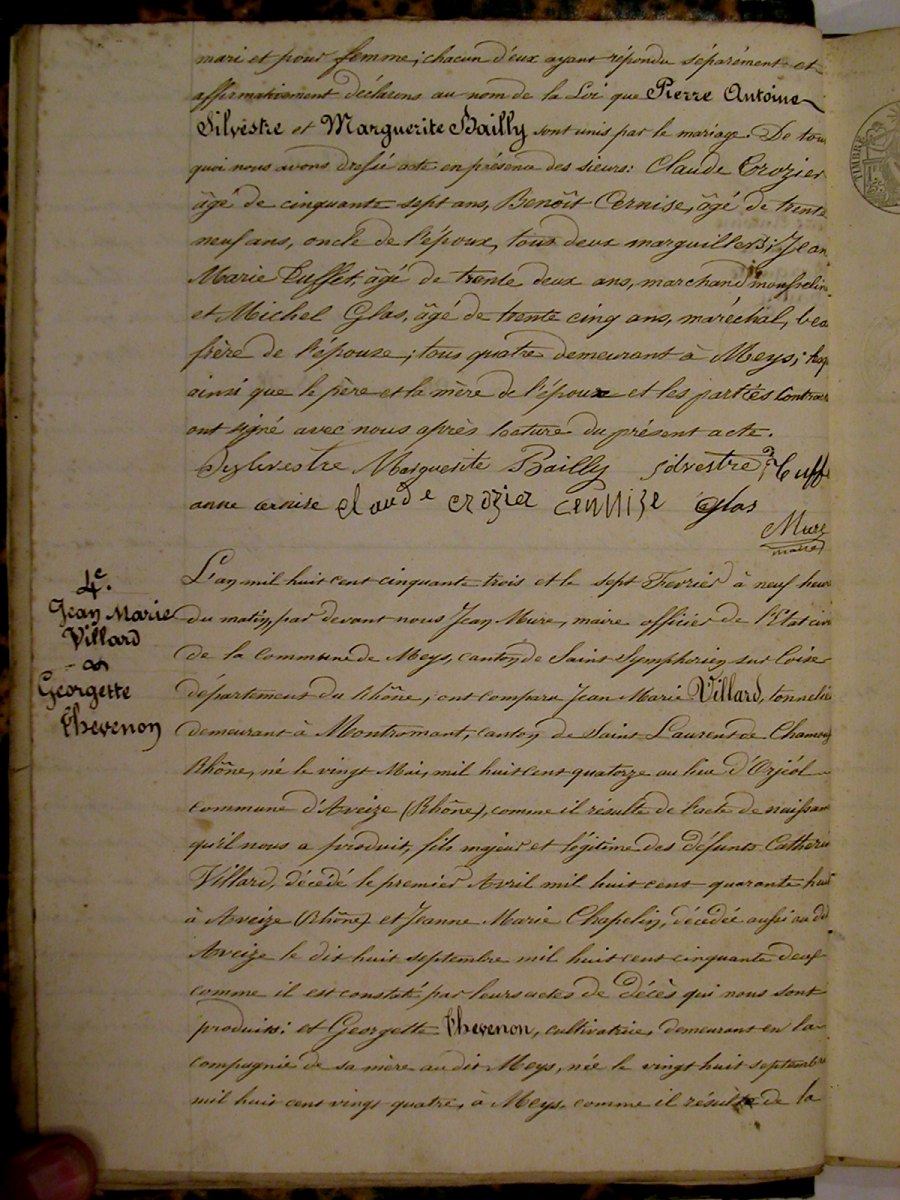 mari et pour femme; chacun d'eux ayant répondu séparément et
affirmativement déclarons au nom de la Loi que Pierre Antoine
Silvestre et Marguerite Bailly sont unis par le mariage. De tou
quoi nous avons dressé acte en présence des sieurs: Claude Crozier
âgé de cinquante sept ans, Benoît Cernise, âgé de trente
neuf ans, oncle de l'époux, tous deux marguillers; Jean
Marie Tuffet, âgé de trente deux ans, marchand mousselin
et Michel Glas, âgé de trente cinq ans, maréchal, bea
frère de l'épouse; tous quatre demeurant à Meys;
ainsi que le père et la mère de l'époux et les parties contrac
ont signé avec nous après lecture du présent acte.
Sylvestre Marguerite Bailly silvestre Tuff
anne cernise claude crozier cernise Glas
Mure
maire
4e.
Jean Marie
Villard
Georgette
Thevenon
L'an mil huit cent cinquante trois et le sept Fevrier à neuf heur
du matin, par devant nous Jean Mure, maire officier de l'Etat civi
de la Commune de Meys, canton de Saint Symphorien sur Coise
département du Rhône, ont comparu Jean Marie Villard, tonnelie
demeurant à Montromant, canton de Saint Laurent de Chamou
Rhône, né le vingt Mai, mil huit cent quatorze au lieu d'Orjol
commune d'Aveize (Rhône), comme il résulte de l'acte de naissan
qu'il nous a produit, fils majeur et légitime des défunts Catheri
Villard, décédé le premier Avril mil huit cent quarante hui
à Aveize (Rhône) et Jeanne Marie Chapelin, décédée aussi au dit
Aveize le dix huit septembre mil huit cent cinquante deux
comme il est constaté par leurs actes de décès qui nous sont
produits: et Georgette Thevenon, cultivatrice, demeurant en la
compagnie de sa mère au dit Meys, née le vingt huit septembre
mil huit cent vingt quatre, à Meys, comme il résulte de la
TIMBRE